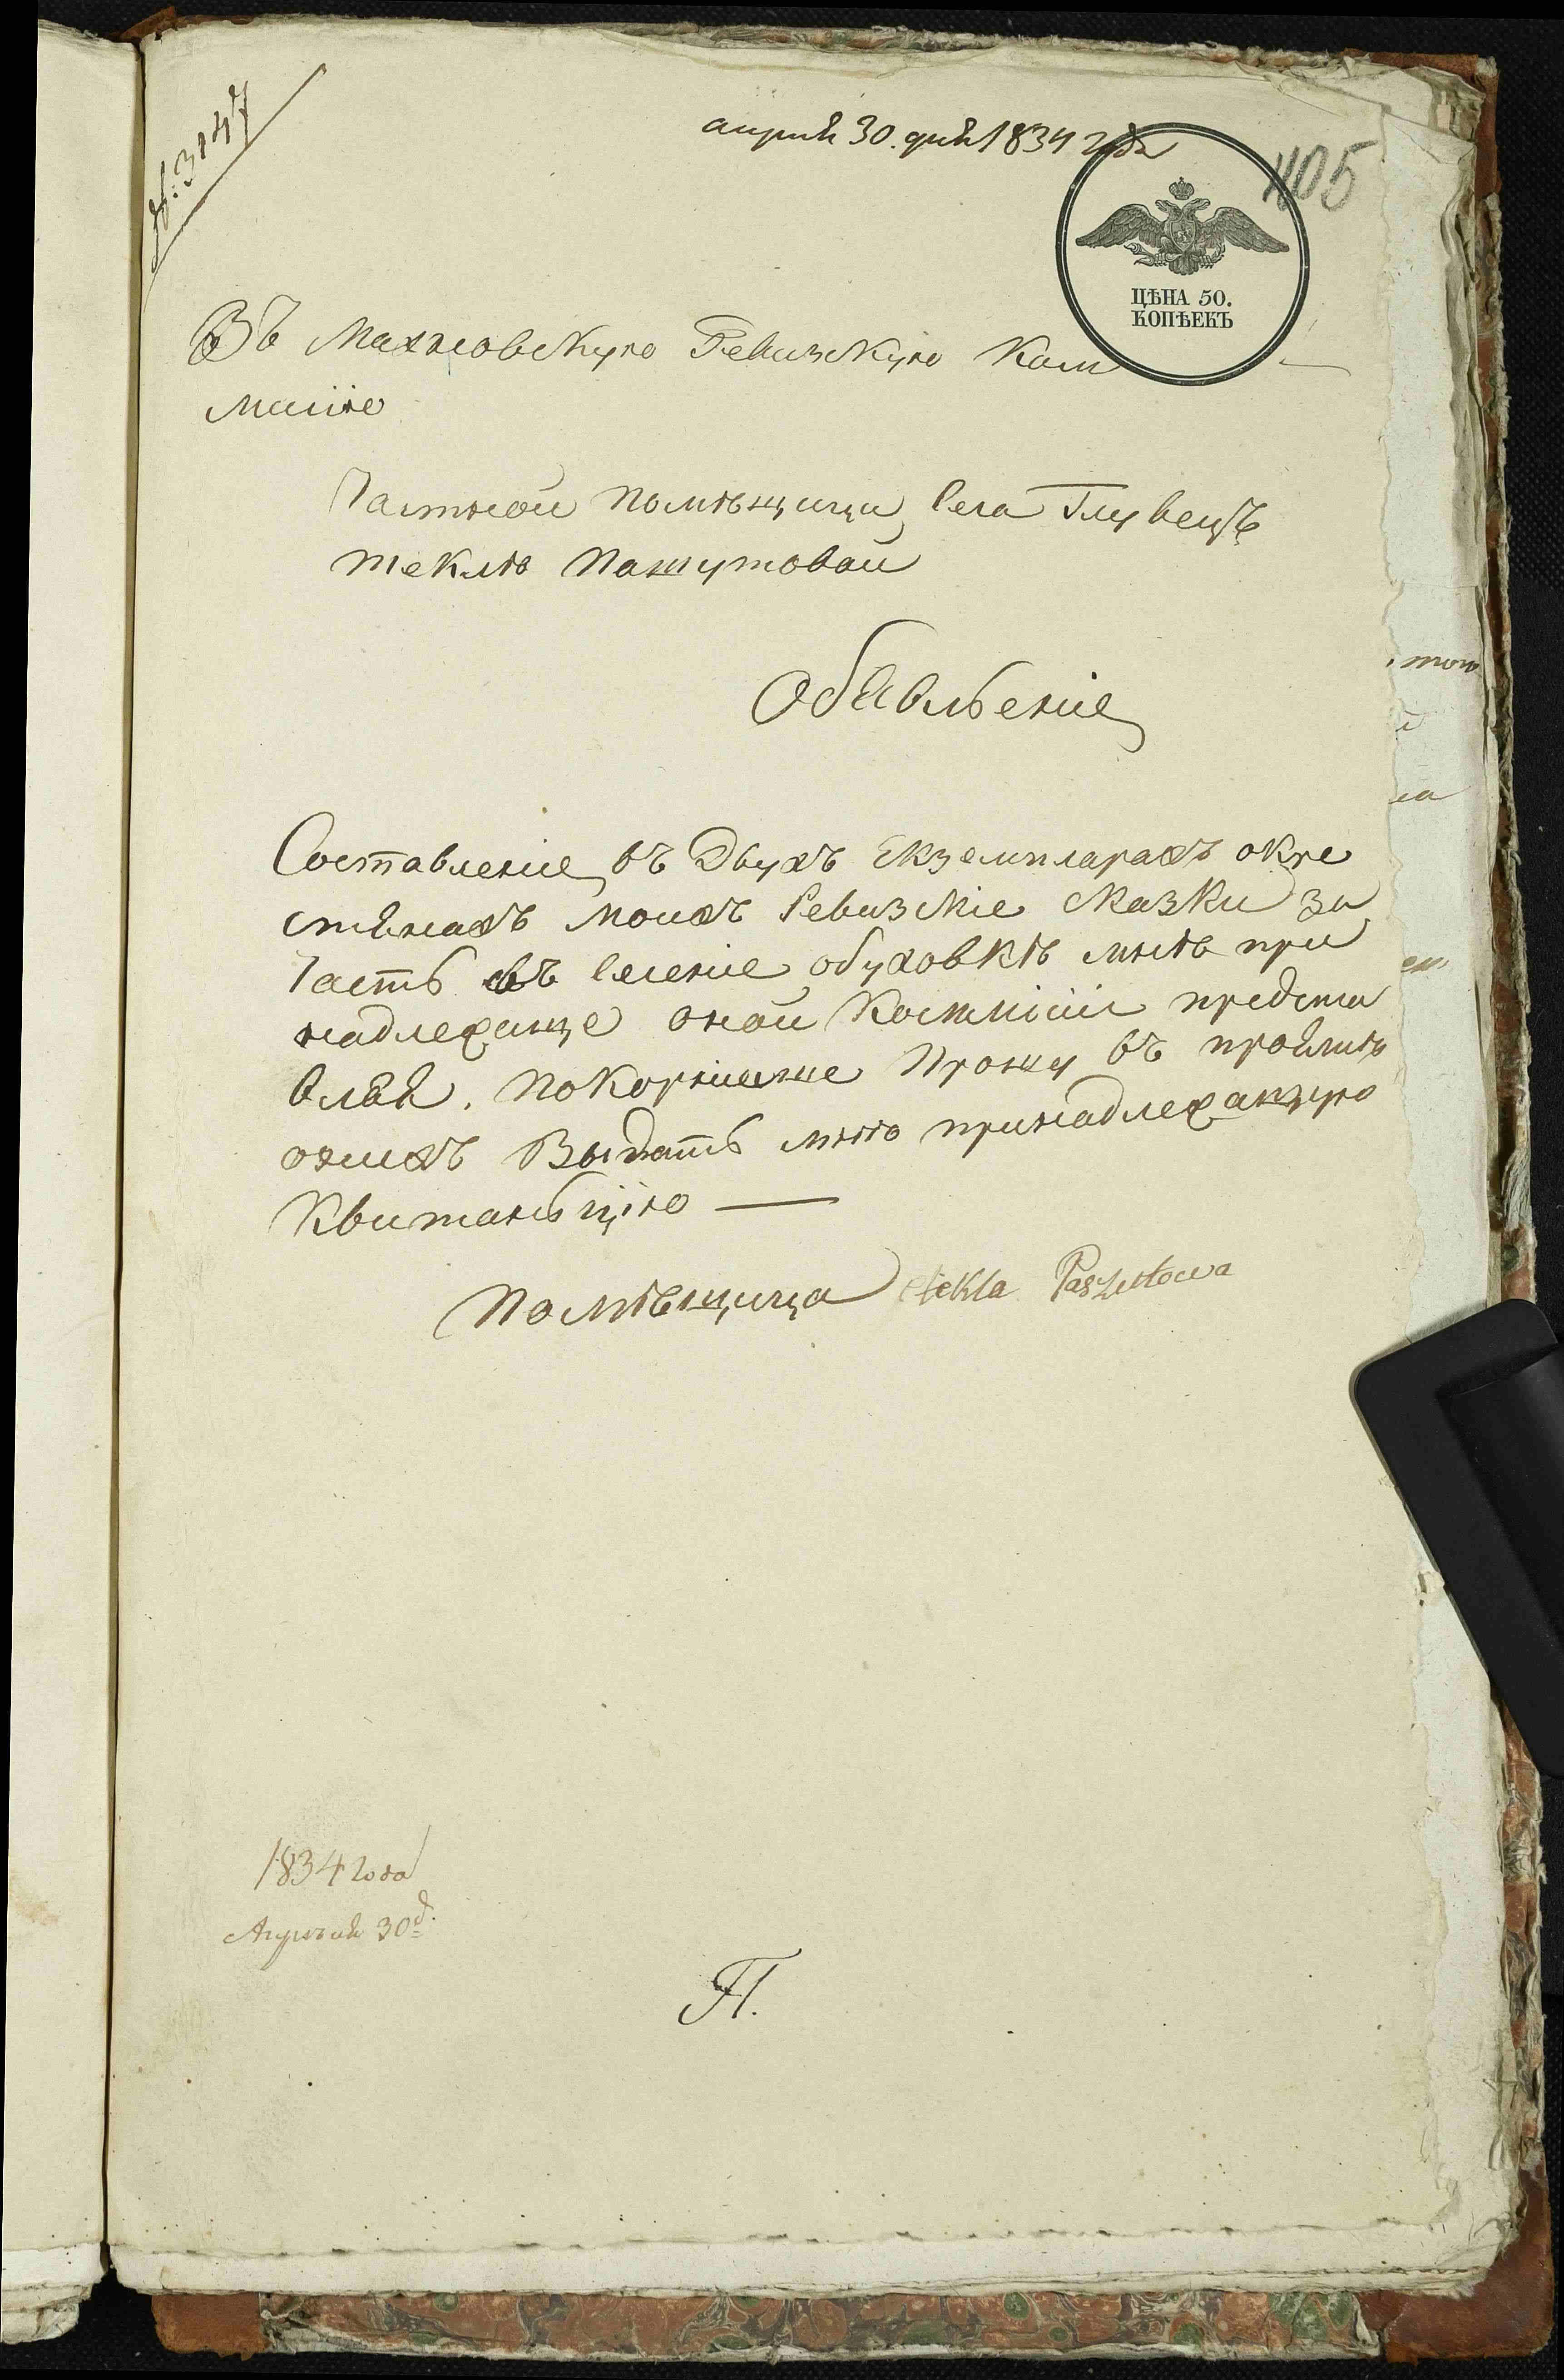 №: 3147
априля 30. дня 1834 года
405
ЦѢНА 50.
КОПѢЕКЪ
Въ Махновскую Ревизкую Ком
мисiю
Частной помѣщици села Глувецъ
теклѣ пашутовой
Обявльенiе
Составленiе въ Двухъ Екземпларахъ окре
стянахъ моихъ Ревизскiе сказки за
часть въ селенiе обуховкѣ мнѣ при
надлежаще оной Коммисiи предста
вляя. покорнише прошу въ прiймѣ
оныхъ Выдать мнѣ принадлежащую
Квитаньцiю —
помѣщица tekla Paszutowa
1834 года
Апрѣля 30д.
П.